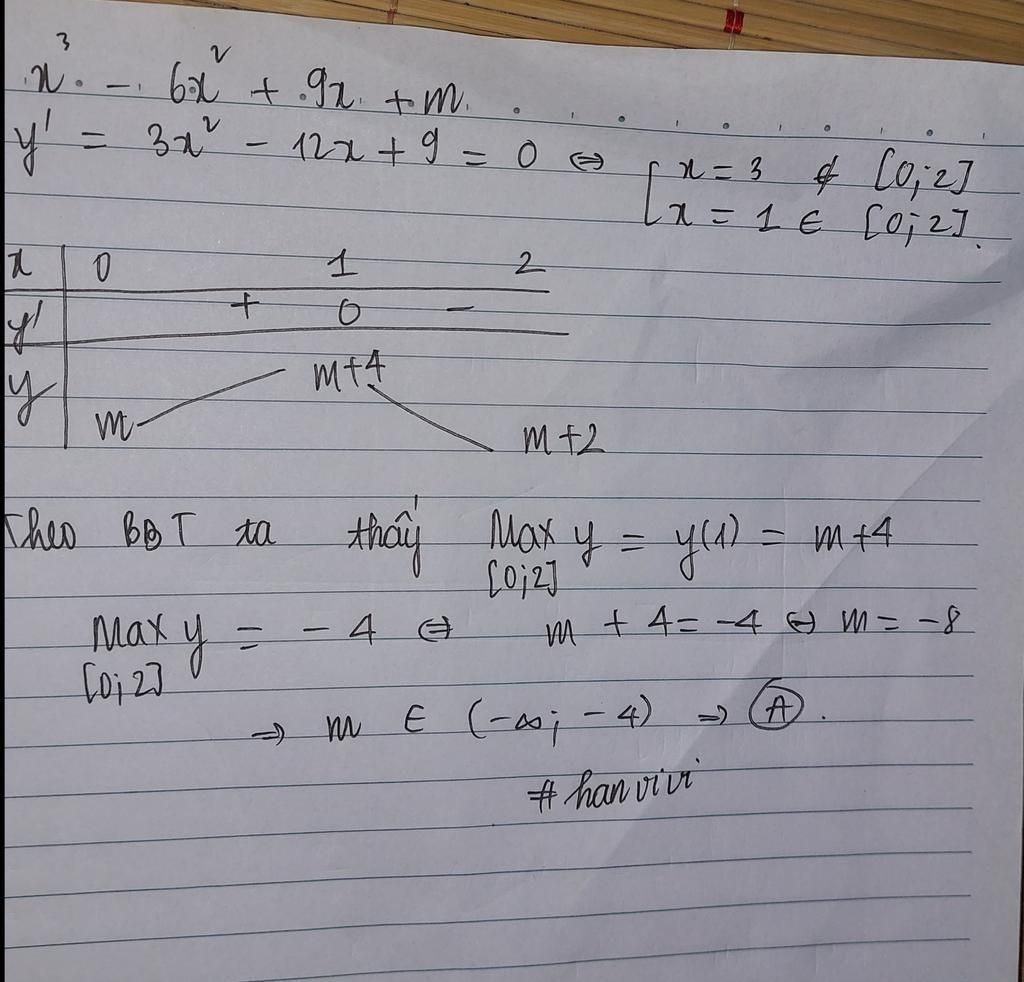 x³ - 6x² + 9x + m
y' = 3x² - 12x + 9 = 0 ⇔ [ x = 3 ∉ [0;2]
x = 1 ∈ [0;2].
x 0 1 2
y' + 0 -
y m+4
m m+2
Theo BBT ta thấy Max y = y(1) = m+4
[0;2]
Max y = - 4 ⇔ m + 4 = -4 ⇔ m = -8
[0;2]
⇒ m ∈ (-∞; -4) ⇒ Ⓐ.
# hanvivi